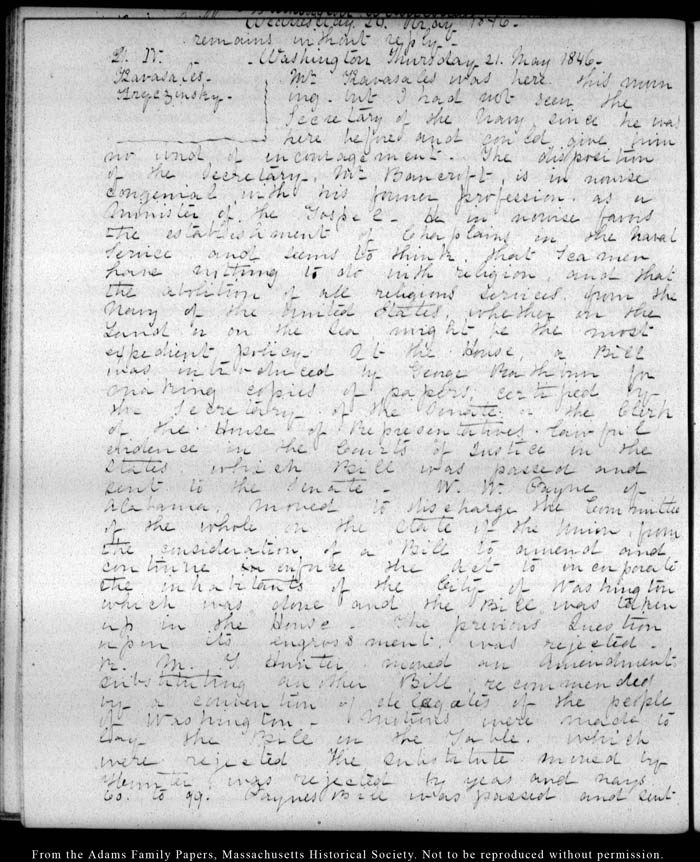 Wednesday 20. May 1846-
remains without reply-
V. IV. - Washington Thursday 21. May 1846-
Kavasales- Mr Kavasales was here this morn
Gryczinsky- ing. but I had not seen the
Secretary of the Navy, since he was
here before, and could give him
no kind of encouragement. The disposition
of the Secretary, Mr Bancroft, is in nowise
congenial with his former profession, as a
Minister of the Gospel- he in nowise favors
the establishment of Chaplains in the Naval
Service, and seems to think, that Seamen
have nothing to do with religion, and that
the abolition of all religious services, from the
Navy of the United States, whether on the
Land or on the Sea might be the most
expedient policy- At the House, a Bill
was introduced by George Rathbun for
making copies of papers, certified by
the Secretary of the Senate, or the Clerk
of the House of Representatives, lawful
evidence in the Courts of Justice in the
States, which Bill was passed and
sent to the Senate- W. W. Payne of
Alabama, moved to discharge the Committee
of the whole on the state of the Union, from
the consideration of a Bill to amend and
continue in force the Act to incorporate
the inhabitants of the City of Washington
which was done and the Bill was taken
up in the House- The previous Question
upon its engrossment, was rejected-
R. M. T Hunter moved an amendment,
substituting another Bill, recommended
by a convention of delegates of the people
of Washington- Motions were made to
lay the Bill on the Table, which
were rejected The substitute moved by
Hunter, was rejected by yeas and nays
60. to 99. Payne's Bill was passed and sent
From the Adams Family Papers, Massachusetts Historical Society. Not to be reproduced without permission.